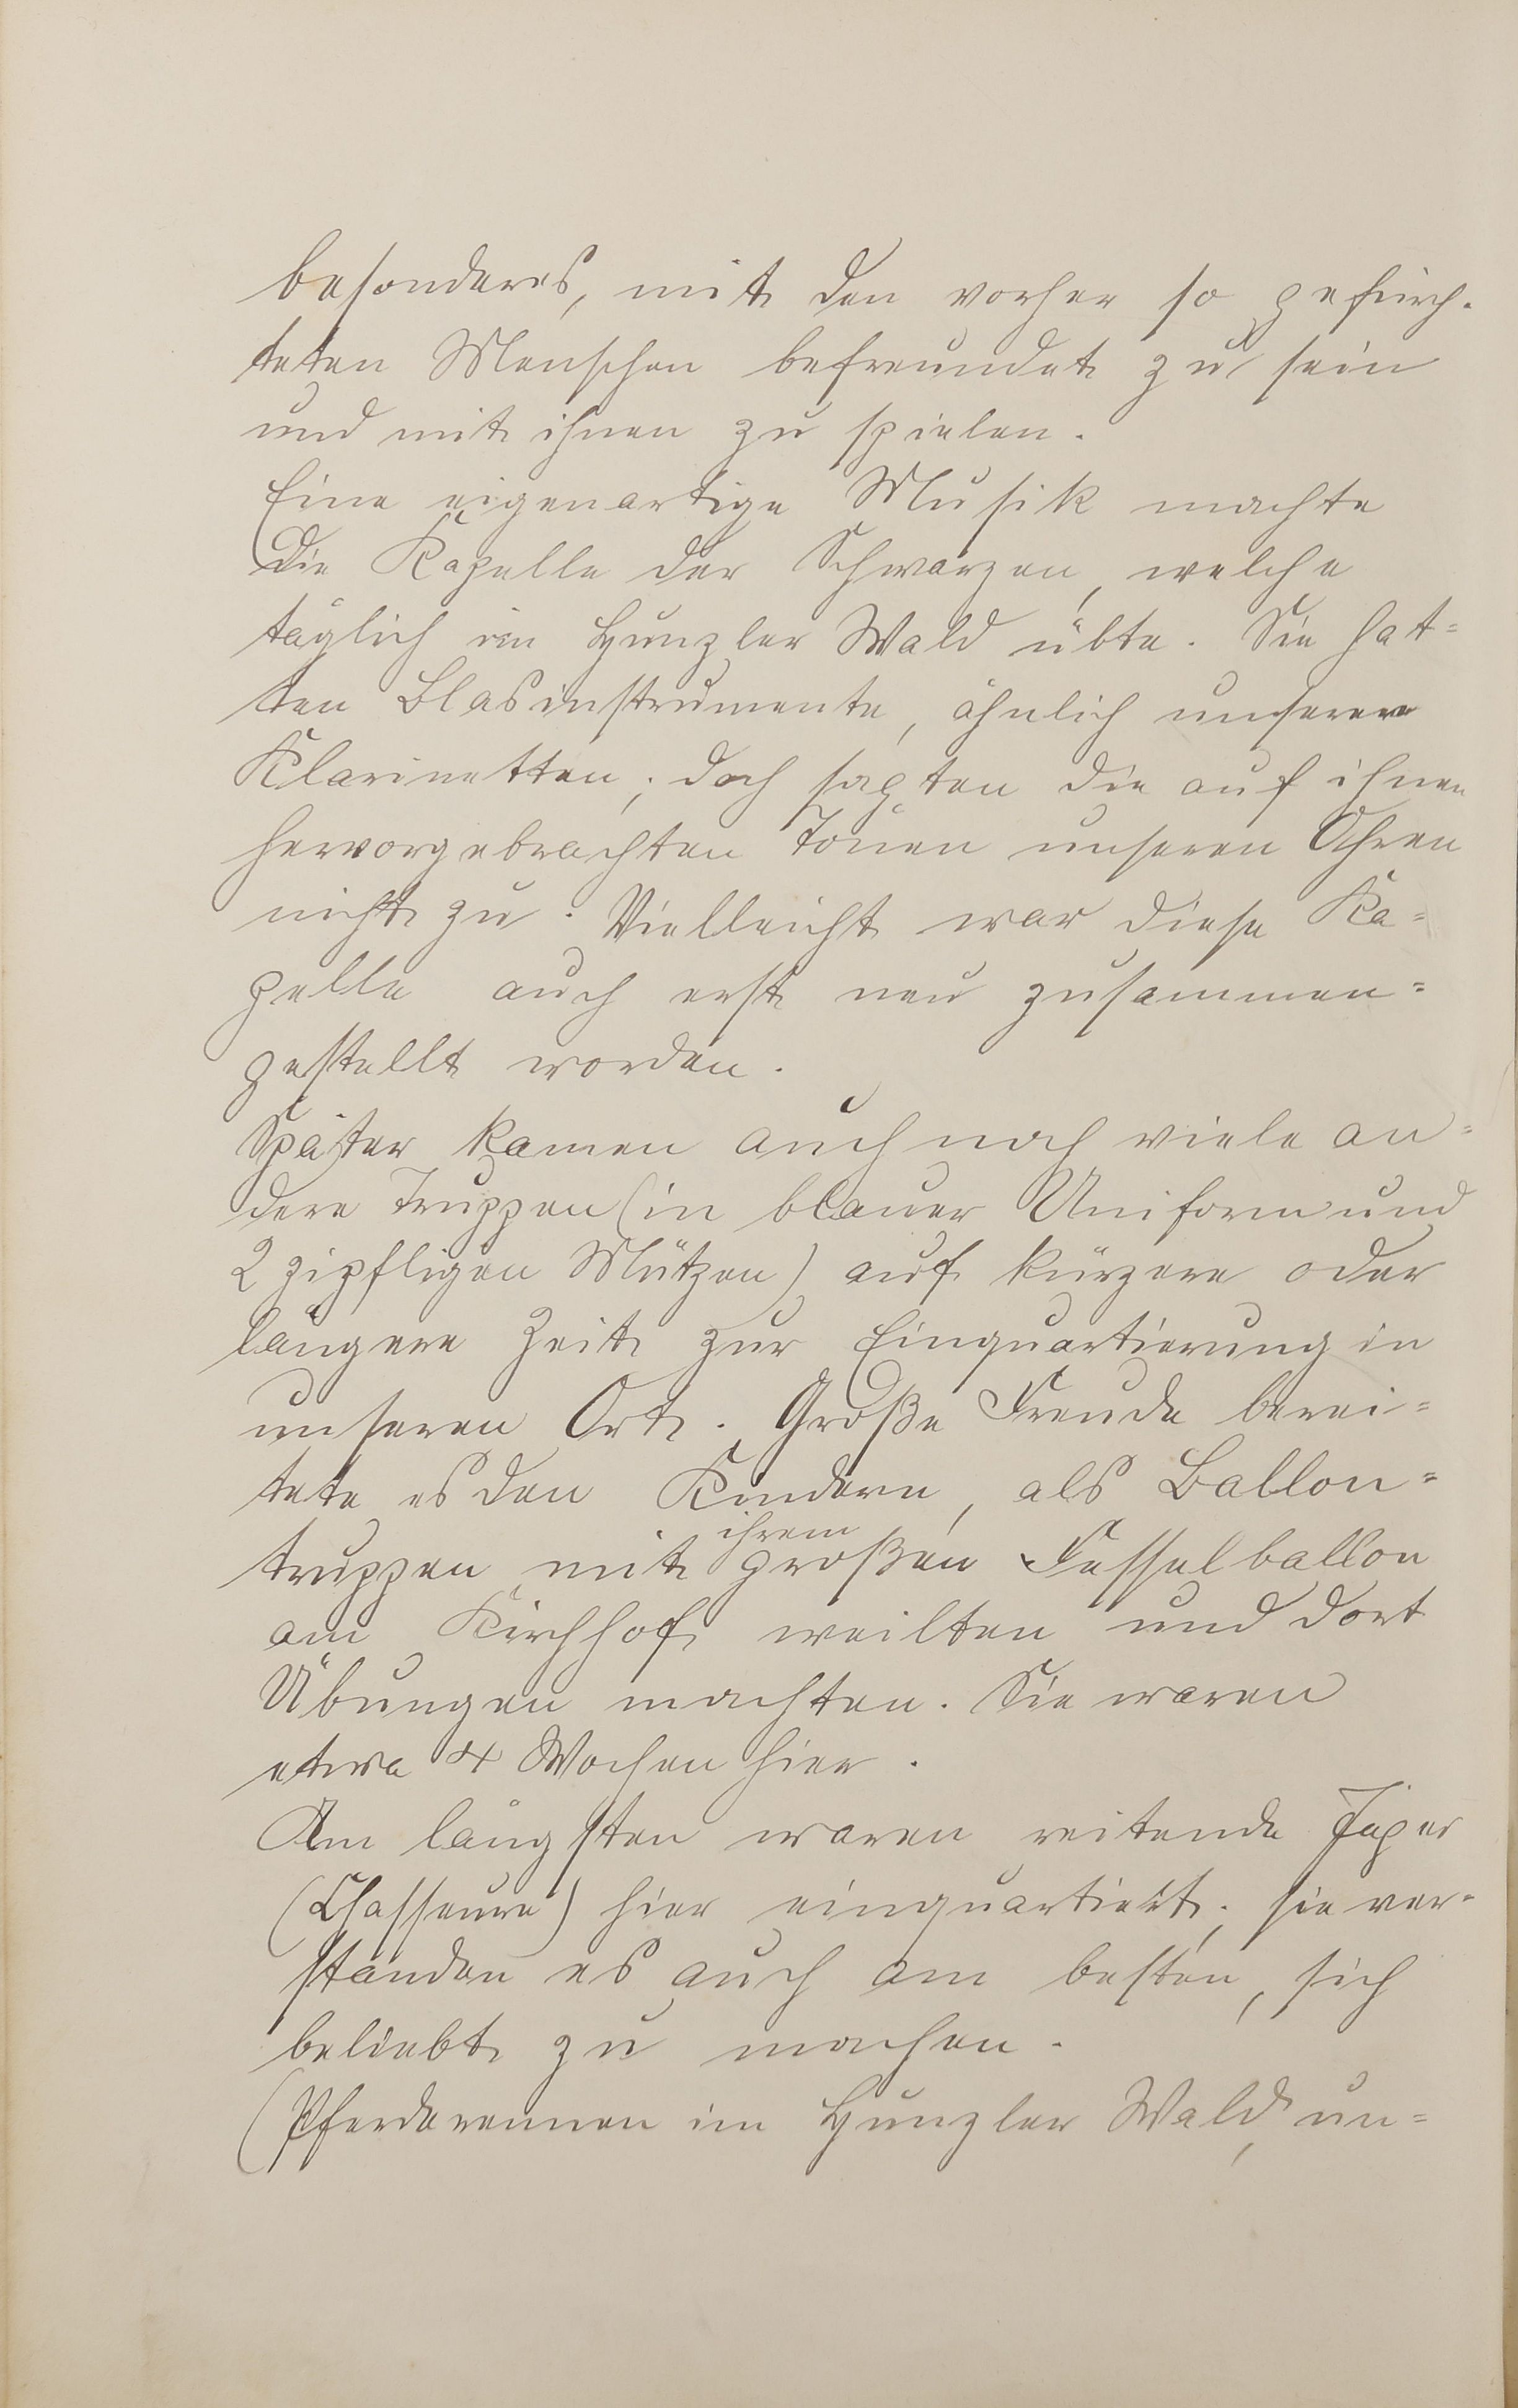 besonderes, mit den vorher so gefürch-
teten Menschen befreundet zu sein
und mit ihnen zu spielen.
Eine eigenartige Musik machte
die Kapelle der Schwarzen, welche
täglich im Hunzler Wald übte. Sie hat=
ten Blasinstrumente, ähnlich unseren
Klarinetten; doch sagten die auf ihnen
hervorgebrachten Töne unseren Ohren
nicht zu. Vielleicht war diese Ka=
pelle auch erst neu zusammen=
gestellt worden.
Später kamen auch noch viele an=
dere Truppen (in blauer Uniform und
2 zipfligen Mützen) auf kürzere oder
längere Zeit zur Einquartierung in
unseren Ort. Große Freude berei=
tete es den Kindern, als Ballon=
truppen mit ihrem großen Fesselballon
am Kirchhof weilten und dort
Übungen machten. Sie waren
etwa 4 Wochen hier.
Am längsten waren reitende Jäger
(Chasseure) hier einquartiert; sie ver-
standen es auch am besten, sich
beliebt zu machen.
(Pferderennen im Hunzler Wald, un=